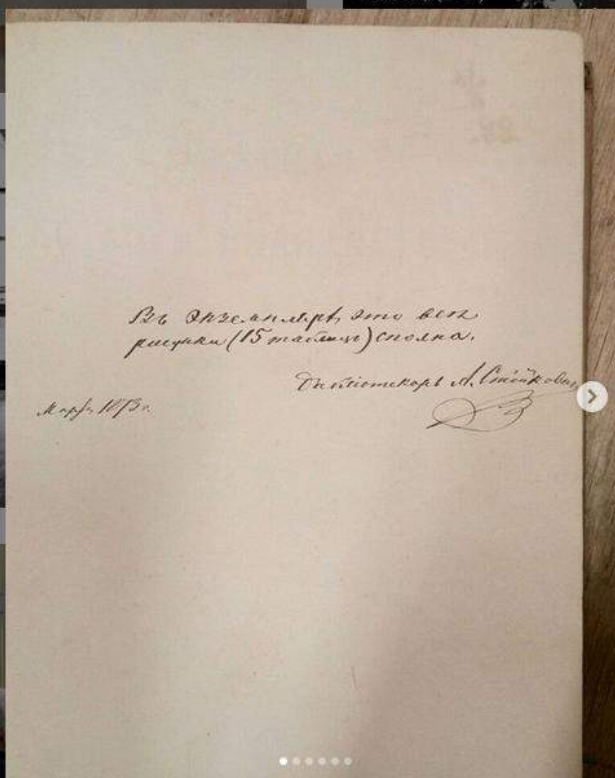 Въ экземплярѣ этом всѣ
рисунки (15 таблицъ) сполна.
Библиотекарь А. Стойкович
Мартъ 1873 г.